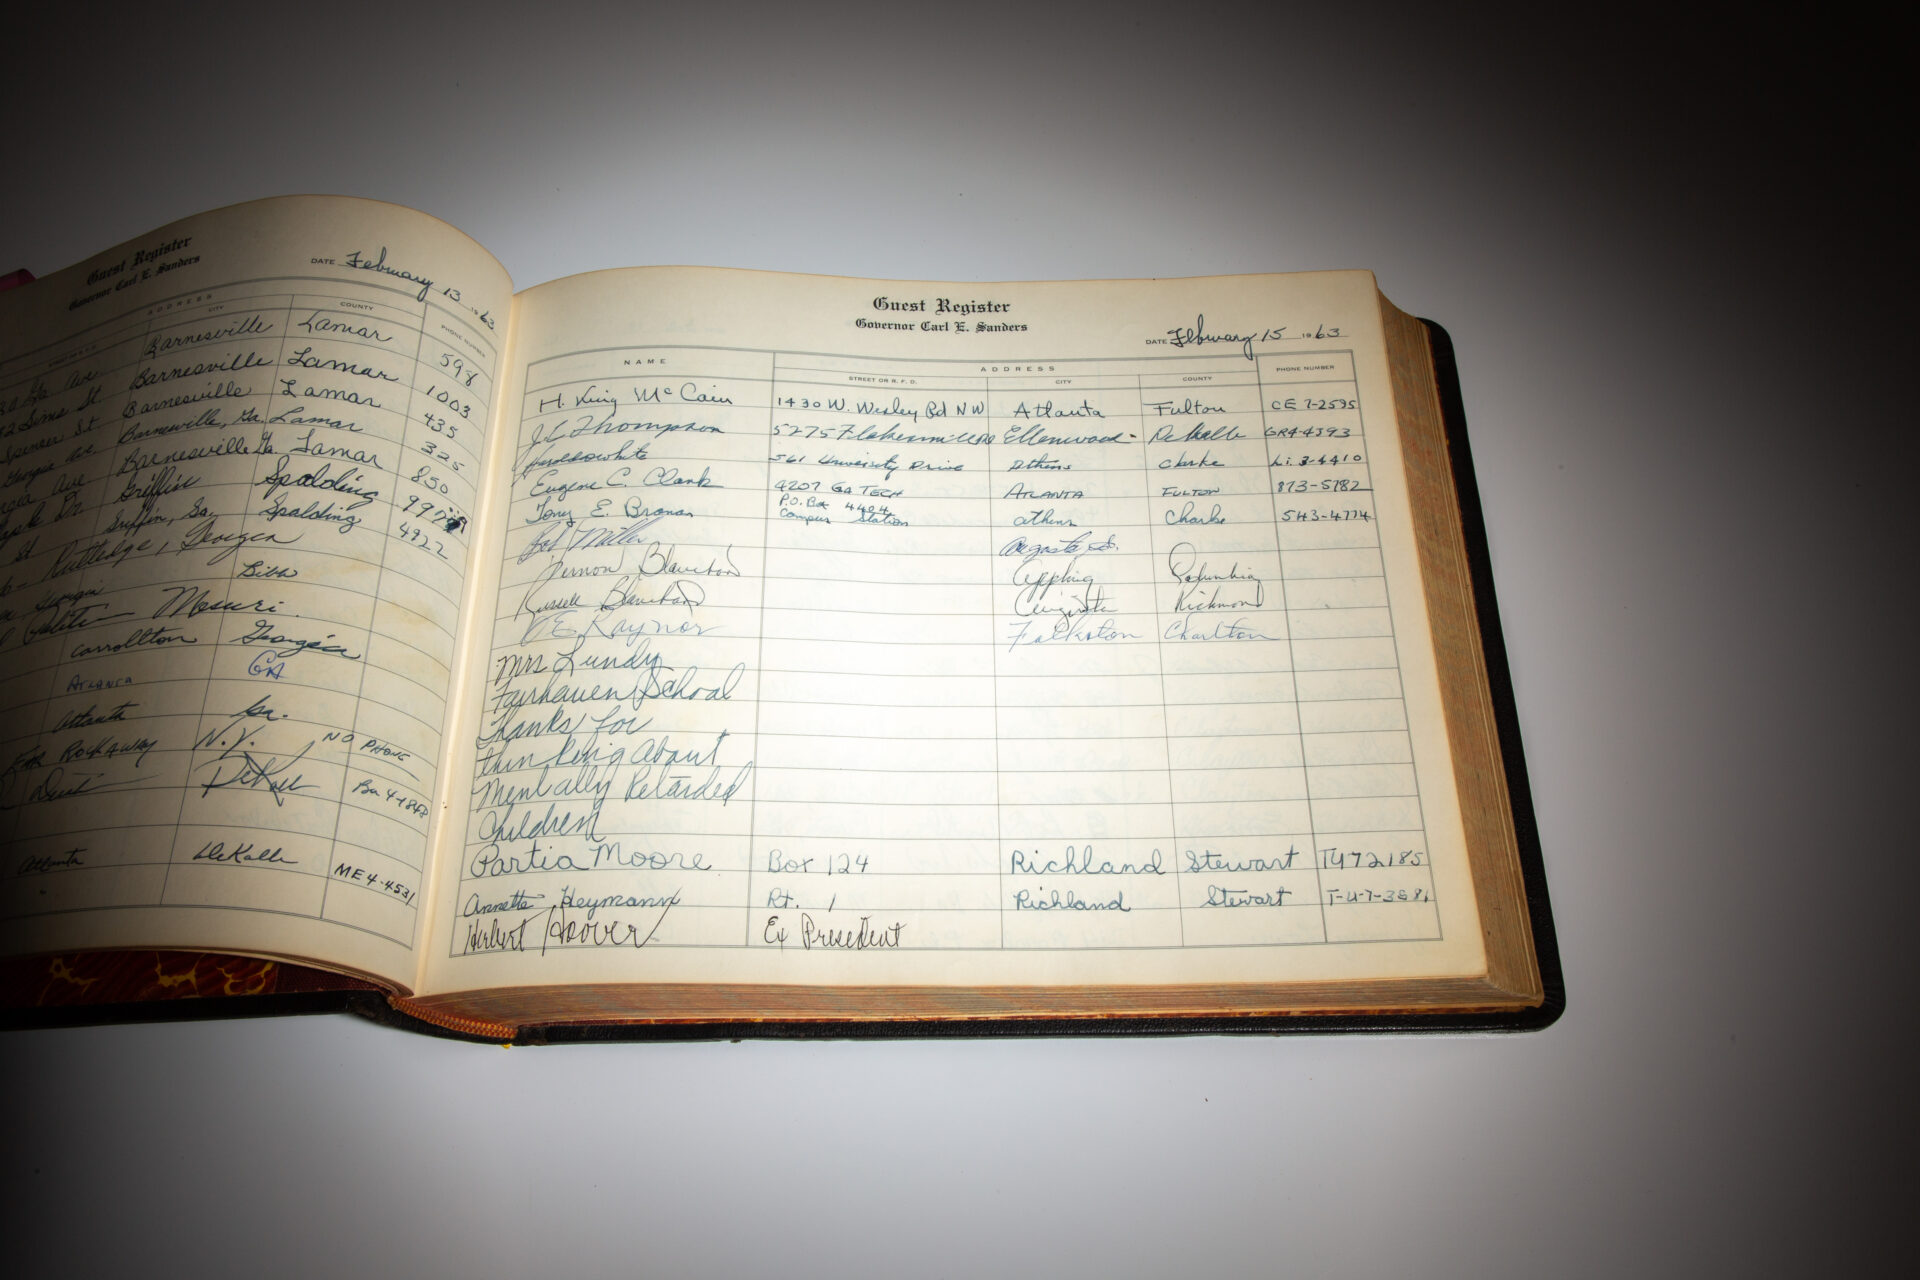 Guest Register
Governor Carl E. Sanders
DATE February 13 1963
ADDRESS
CITY COUNTY PHONE NUMBER
Ga Ave Barnesville Lamar 598
Sims St Barnesville Lamar 1003
Spencer St Barnesville Lamar 435
Ave Barnesville, Ga. Lamar 325
Ave Barnesville Ga. Lamar 850
Dr Griffin Spalding
St Griffin, Ga. Spalding 4922
Rutledge, Georgia
Bibb
Missuri.
Carrollton Georgia
Atlanta GA
Atlanta Ga.
FAR ROCKAWAY N.Y. NO PHONE
DeKalb
Atlanta DeKalb ME4-4531
Guest Register
Governor Carl E. Sanders
DATE February 15 1963
NAME ADDRESS PHONE NUMBER
STREET OR R. F. D. CITY COUNTY
H. King McCain 1430 W. Wesley Rd NW Atlanta Fulton CE 7-2595
J.C. Thompson 5275 Ellenwood DeKalb GR4-4393
Harold White 561 University Drive Athens Clarke Li. 3-4410
Eugene C. Clark 4207 GA TECH ATLANTA FULTON 873-5782
Tony E. P.O. Box 4404 Campus Station Athens Clarke 543-4774
Bob Miller Augusta Ga.
Vernon Blanchard Appling Columbia
Russell Blanchard Richmond
Raynor Folkston Charlton
Mrs Lundy
Fairhaven School
Thanks for
thinking About
Mentally Retarded
Children
Partia Moore Box 124 Richland Stewart TU72185
Annette Heymann Rt. 1 Richland Stewart T-U-7-3581
Herbert Hoover Ex President